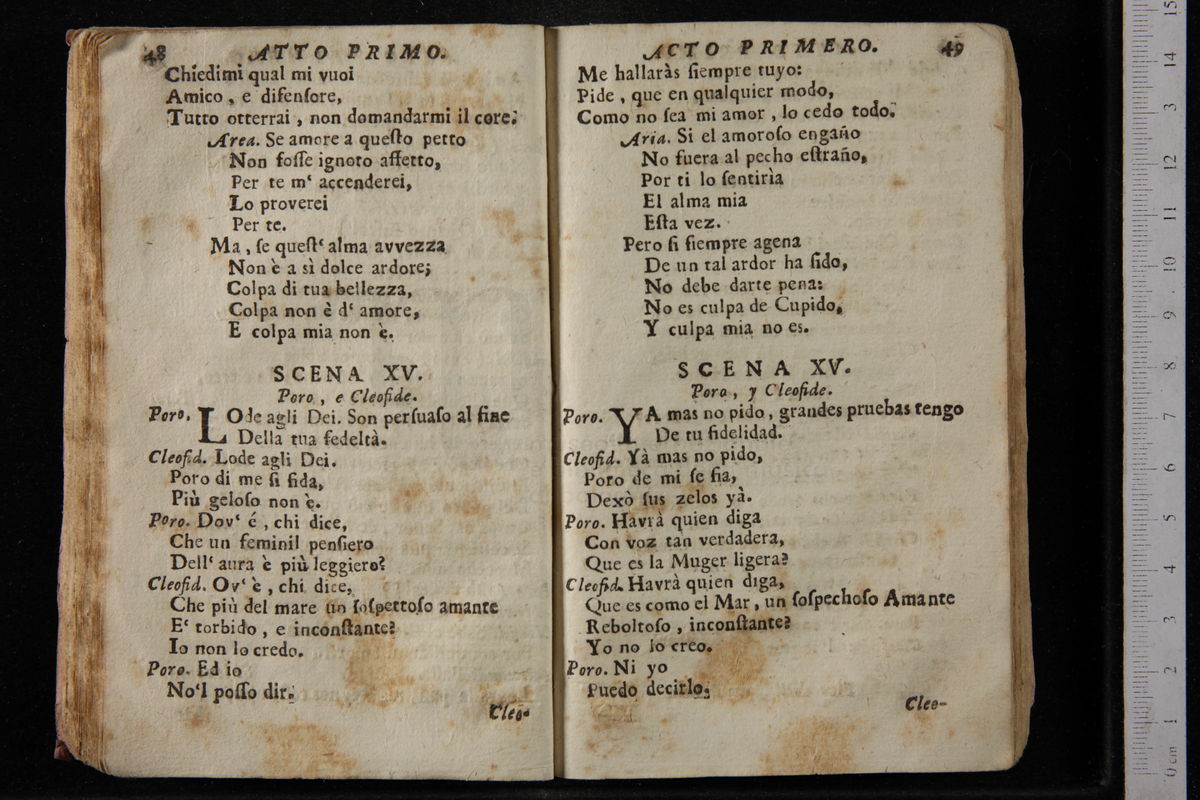 48 ATTO PRIMO.
Chiedimi qual mi vuoi
Amico, e difenſore,
Tutto otterrai, non domandarmi il core.
Area. Se amore a queſto petto
Non foſſe ignoto affetto,
Per te m‘ accenderei,
Lo proverei
Per te.
Ma, ſe queſt‘ alma avvezza
Non è a sì dolce ardore;
Colpa di tua bellezza,
Colpa non è d‘ amore,
E colpa mia non è.
SCENA XV.
Poro, e Cleofide.
Poro. LOde agli Dei. Son perſuaſo al fine
Della tua fedeltà.
Cleofid. Lode agli Dei.
Poro di me ſi fida,
Più geloſo non è.
Poro. Dov‘ é, chi dice,
Che un feminil penſiero
Dell‘ aura è più leggiero?
Cleofid. Ov‘ è, chi dice,
Che più del mare un ſoſpettoſo amante
E‘ torbido, e inconſtante?
Io non lo credo.
Poro. Ed io
No‘l poſſo dir.
Cleo-
ACTO PRIMERO. 49
Me hallaràs ſiempre tuyo:
Pide, que en qualquier modo,
Como no ſea mi amor, lo cedo todo.
Aria. Si el amoroſo engaño
No fuera al pecho eſtraño,
Por ti lo ſentirìa
El alma mia
Eſta vez.
Pero ſi ſiempre agena
De un tal ardor ha ſido,
No debe darte pena:
No es culpa de Cupido,
Y culpa mia no es.
SCENA XV.
Poro, y Cleofide.
Poro. YA mas no pido, grandes pruebas tengo
De tu fidelidad.
Cleofid. Yà mas no pido,
Poro de mi ſe fia,
Dexò ſus zelos yà.
Poro. Havrà quien diga
Con voz tan verdadera,
Que es la Muger ligera?
Cleofid. Havrà quien diga,
Que es como el Mar, un ſoſpechoſo Amante
Reboltoſo, inconſtante?
Yo no lo creo.
Poro. Ni yo
Puedo decirlo.
Cleo-